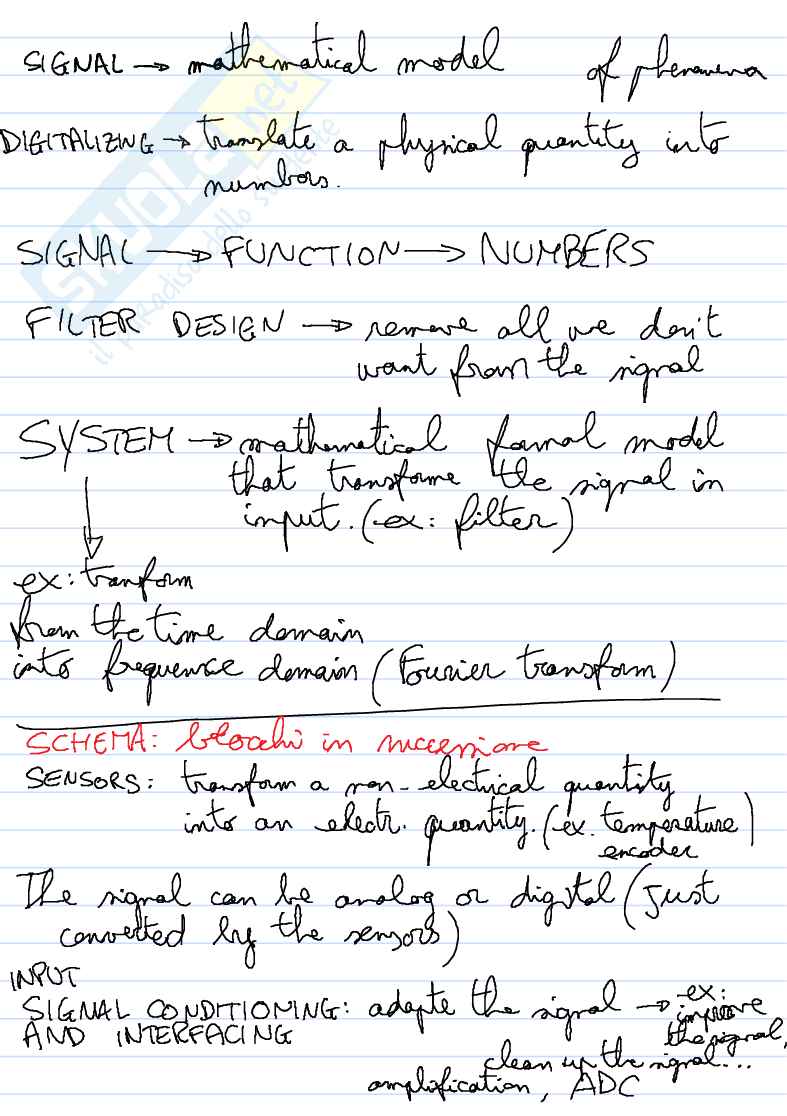 SIGNAL → mathematical model of phenomena
DIGITALIZING → translate a physical quantity into
numbers.
SIGNAL → FUNCTION → NUMBERS
FILTER DESIGN → remove all we don't
want from the signal
SYSTEM → mathematical formal model
that transforme the signal in
input. (ex: filter)
ex: tranform
from the time domain
into frequence domain (Fourier transform)
SCHEMA: blocchi in successione
SENSORS: transform a non-electrical quantity
into an electr. quantity. (ex. temperature)
encoder
The signal can be analog or digital (just
converted by the sensors)
INPUT
SIGNAL CONDITIONING: adapte the signal → ex:
AND INTERFACING
improve
the signal,
clean up the signal...
amplification, ADC
SKUOLA.net
il paradiso dello studente